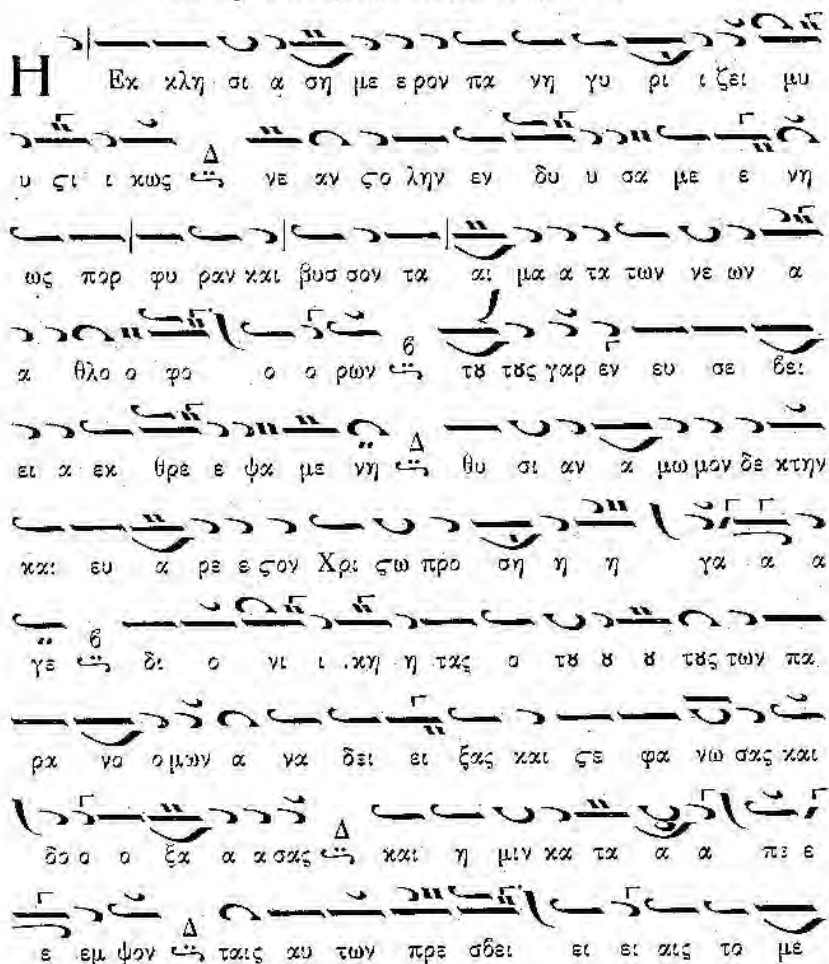 Η Εκ κλη σι α ση με ε ρον πα νη γυ ρι ι ζει μυ
υ ςι ι κως Δ νε αν ςο λην εν δυ υ σα με ε νη
ως πορ φυ ραν και βυσ σον τα αι μα α τα των νε ων α
α θλο ο φο ο ο ρων β τȣ τȣς γαρ εν ευ σε βει
ει α εκ θρε ε ψα με νη Δ θυ σι αν α μω μον δε κτην
και ευ α ρε ε ςον Χρι ςω προ ση η η γα α α
γε β δι ο νι ι κη η τας ο τȣ ȣ ȣ τȣς των πα
ρα νο ο μων α να δει ει ξας και ςε φα νω σας και
δο ο ο ξα α α σας Δ και η μιν κα τα α α πε ε
ε εμ ψον Δ ταις αυ των πρε σβει ει ει αις το με